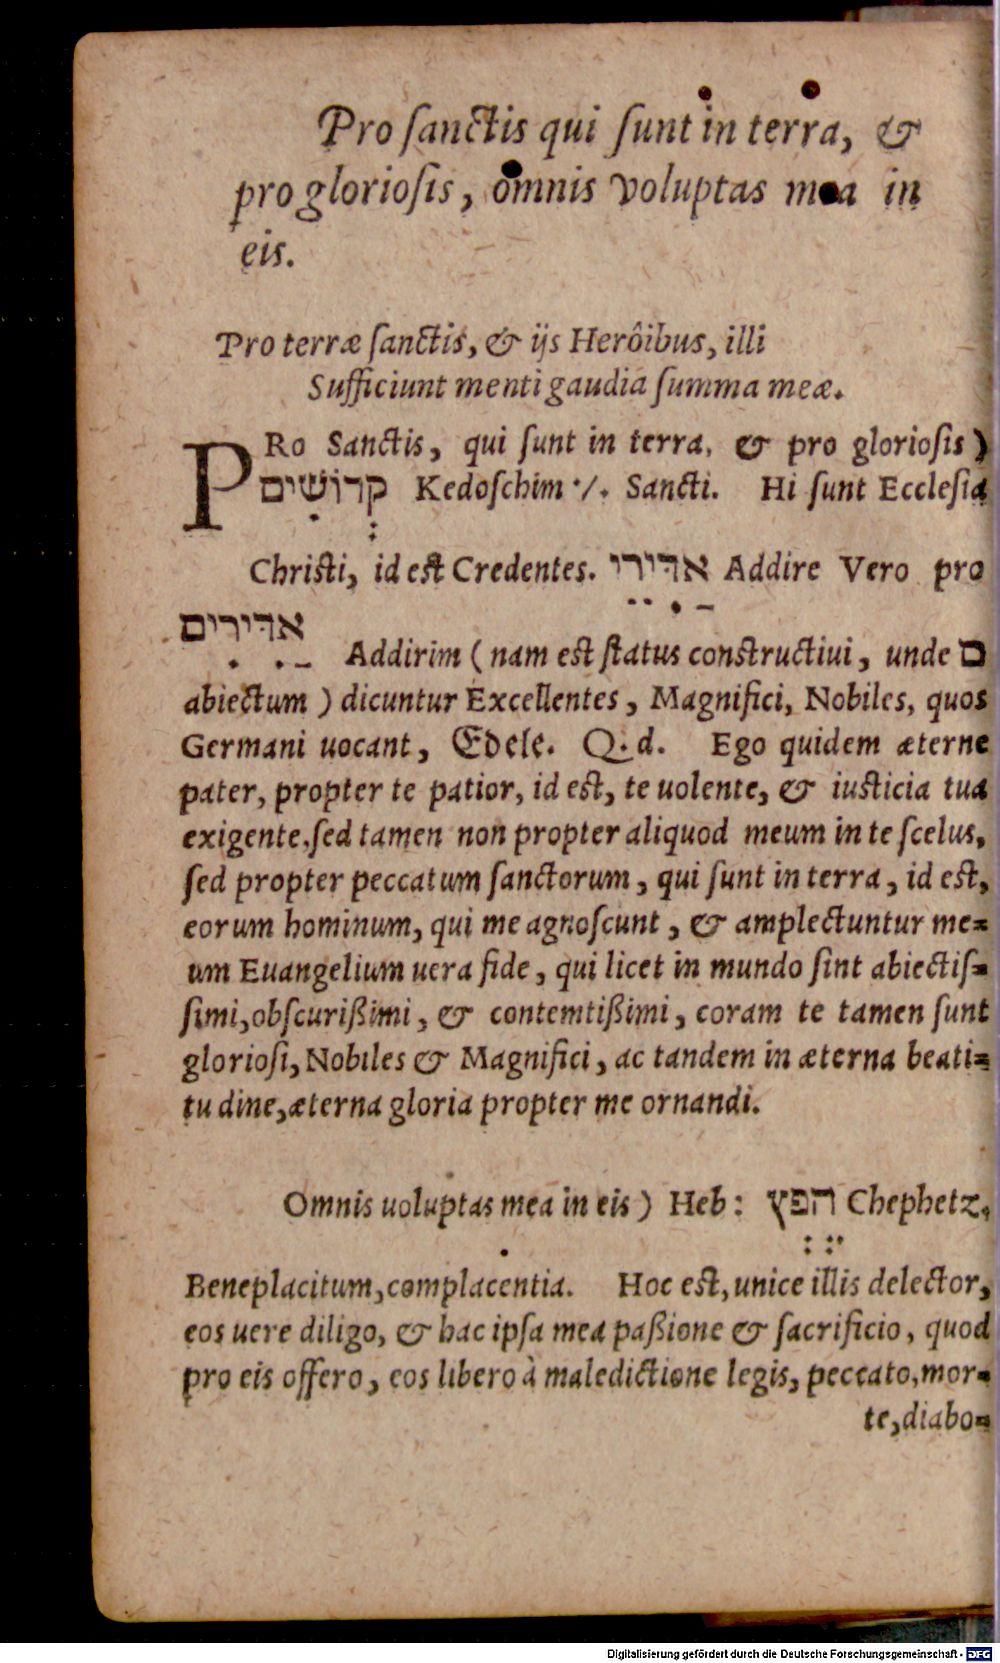 Pro ſanctis qui ſunt in terra, &
pro glorioſis, omnis voluptas mea in
eis.
Pro terræ ſanctis, & ijs Herôibus, illi
Sufficiunt menti gaudia ſumma meæ.
PRo Sanctis, qui ſunt in terra, & pro glorioſis)
קְדוֹשִׁים Kedoſchim ·/. Sancti. Hi ſunt Eccleſia
Chriſti, id eſt Credentes. אַדִּירֵי Addire Vero pro
אַדִּירִים Addirim (nam eſt ſtatus constructiui, unde ם
abiectum) dicuntur Excellentes, Magnifici, Nobiles, quos
Germani uocant, Edele. Q.d. Ego quidem æterne
pater, propter te patior, id eſt, te uolente, & iuſticia tua
exigente, ſed tamen non propter aliquod meum in te ſcelus,
ſed propter peccatum ſanctorum, qui ſunt in terra, id eſt,
eorum hominum, qui me agnoſcunt, & amplectuntur me=
um Euangelium uera fide, qui licet in mundo ſint abiectiſ=
ſimi, obſcurißimi, & contemtißimi, coram te tamen ſunt
glorioſi, Nobiles & Magnifici, ac tandem in æterna beati=
tudine, æterna gloria propter me ornandi.
Omnis uoluptas mea in eis) Heb: הֶפְץ Chephetz.
Beneplacitum, complacentia. Hoc eſt, unice illis delector,
eos uere diligo, & hac ipſa mea paßione & ſacrificio, quod
pro eis offero, eos libero à maledictione legis, peccato, mor=
te, diabo=
Digitalisierung gefördert durch die Deutsche Forschungsgemeinschaft - DFG